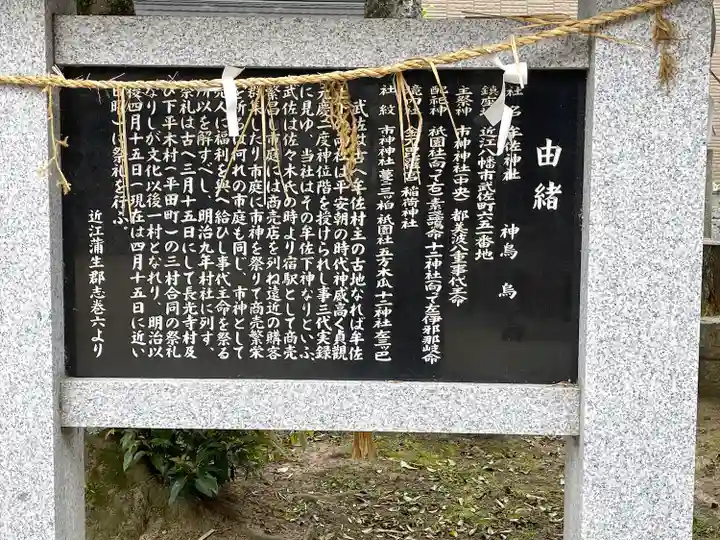 由緒
社 名 牟佐神社 神烏 烏
鎮座地 近江八幡市武佐町六五一番地
主祭神 市神神社(中央) 都美波八重事代主命
配祀神 祇園社向って右 素盞嗚命 十二神社向って左 伊邪那岐命
境内社 稲荷神社
社紋 市神神社 蔓三ツ柏 祇園社 五ツ木瓜 十二神社 左三ツ巴
武佐は古へ牟佐村主の古地なれば牟佐
上下両社は平安朝の時代神威高く貞観
元慶二度神位階を授けられし事三代実録
に見ゆ、当社はその牟佐下神なりといふ、
武佐は佐々木氏の時より宿駅として商売
繁昌し市庭には商売店を列ね遠近の購客
群集したり市庭に市神を祭りて商売繁栄
を祈るは何れの市庭も同じ、市神として
売人に福利を與へ給ひし事代主命を祭る
所以を解すべし、明治九年村社に列す、
祭礼は古へ三月十五日にして長光寺村及
び下平木村(平田町)の三村合同の祭礼
なりしが文化以後一村となれり、明治以
後四月十五日(現在は四月十五日に近い
日曜)に祭礼を行ふ、
近江蒲生郡志巻六より